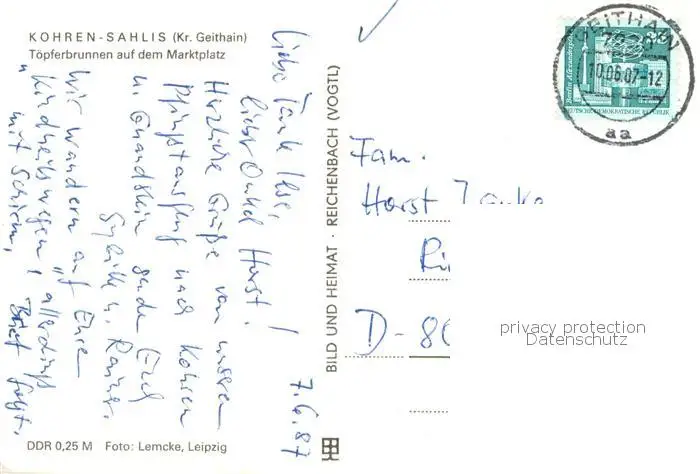 KOHREN-SAHLIS (Kr. Geithain)
Töpferbrunnen auf dem Marktplatz
Liebe Tante Ilse,
lieber Onkel Horst!
Herzliche Grüße von unserem
Pfingstausflug nach Kohren
u. Gnandstein senden Euch
Sybille u. Rainer.
Wir wandern auf „Ihren
Kindheitswegen", allerdings
mit Schirm, Brief folgt.
7.6.87
DDR 0,25 M Foto: Lemcke, Leipzig
BILD UND HEIMAT · REICHENBACH (VOGTL)
GEITHAIN
10.06.87-12
aa
DEUTSCHE DEMOKRATISCHE REPUBLIK
Fam.
Horst
D-80
privacy protection
Datenschutz